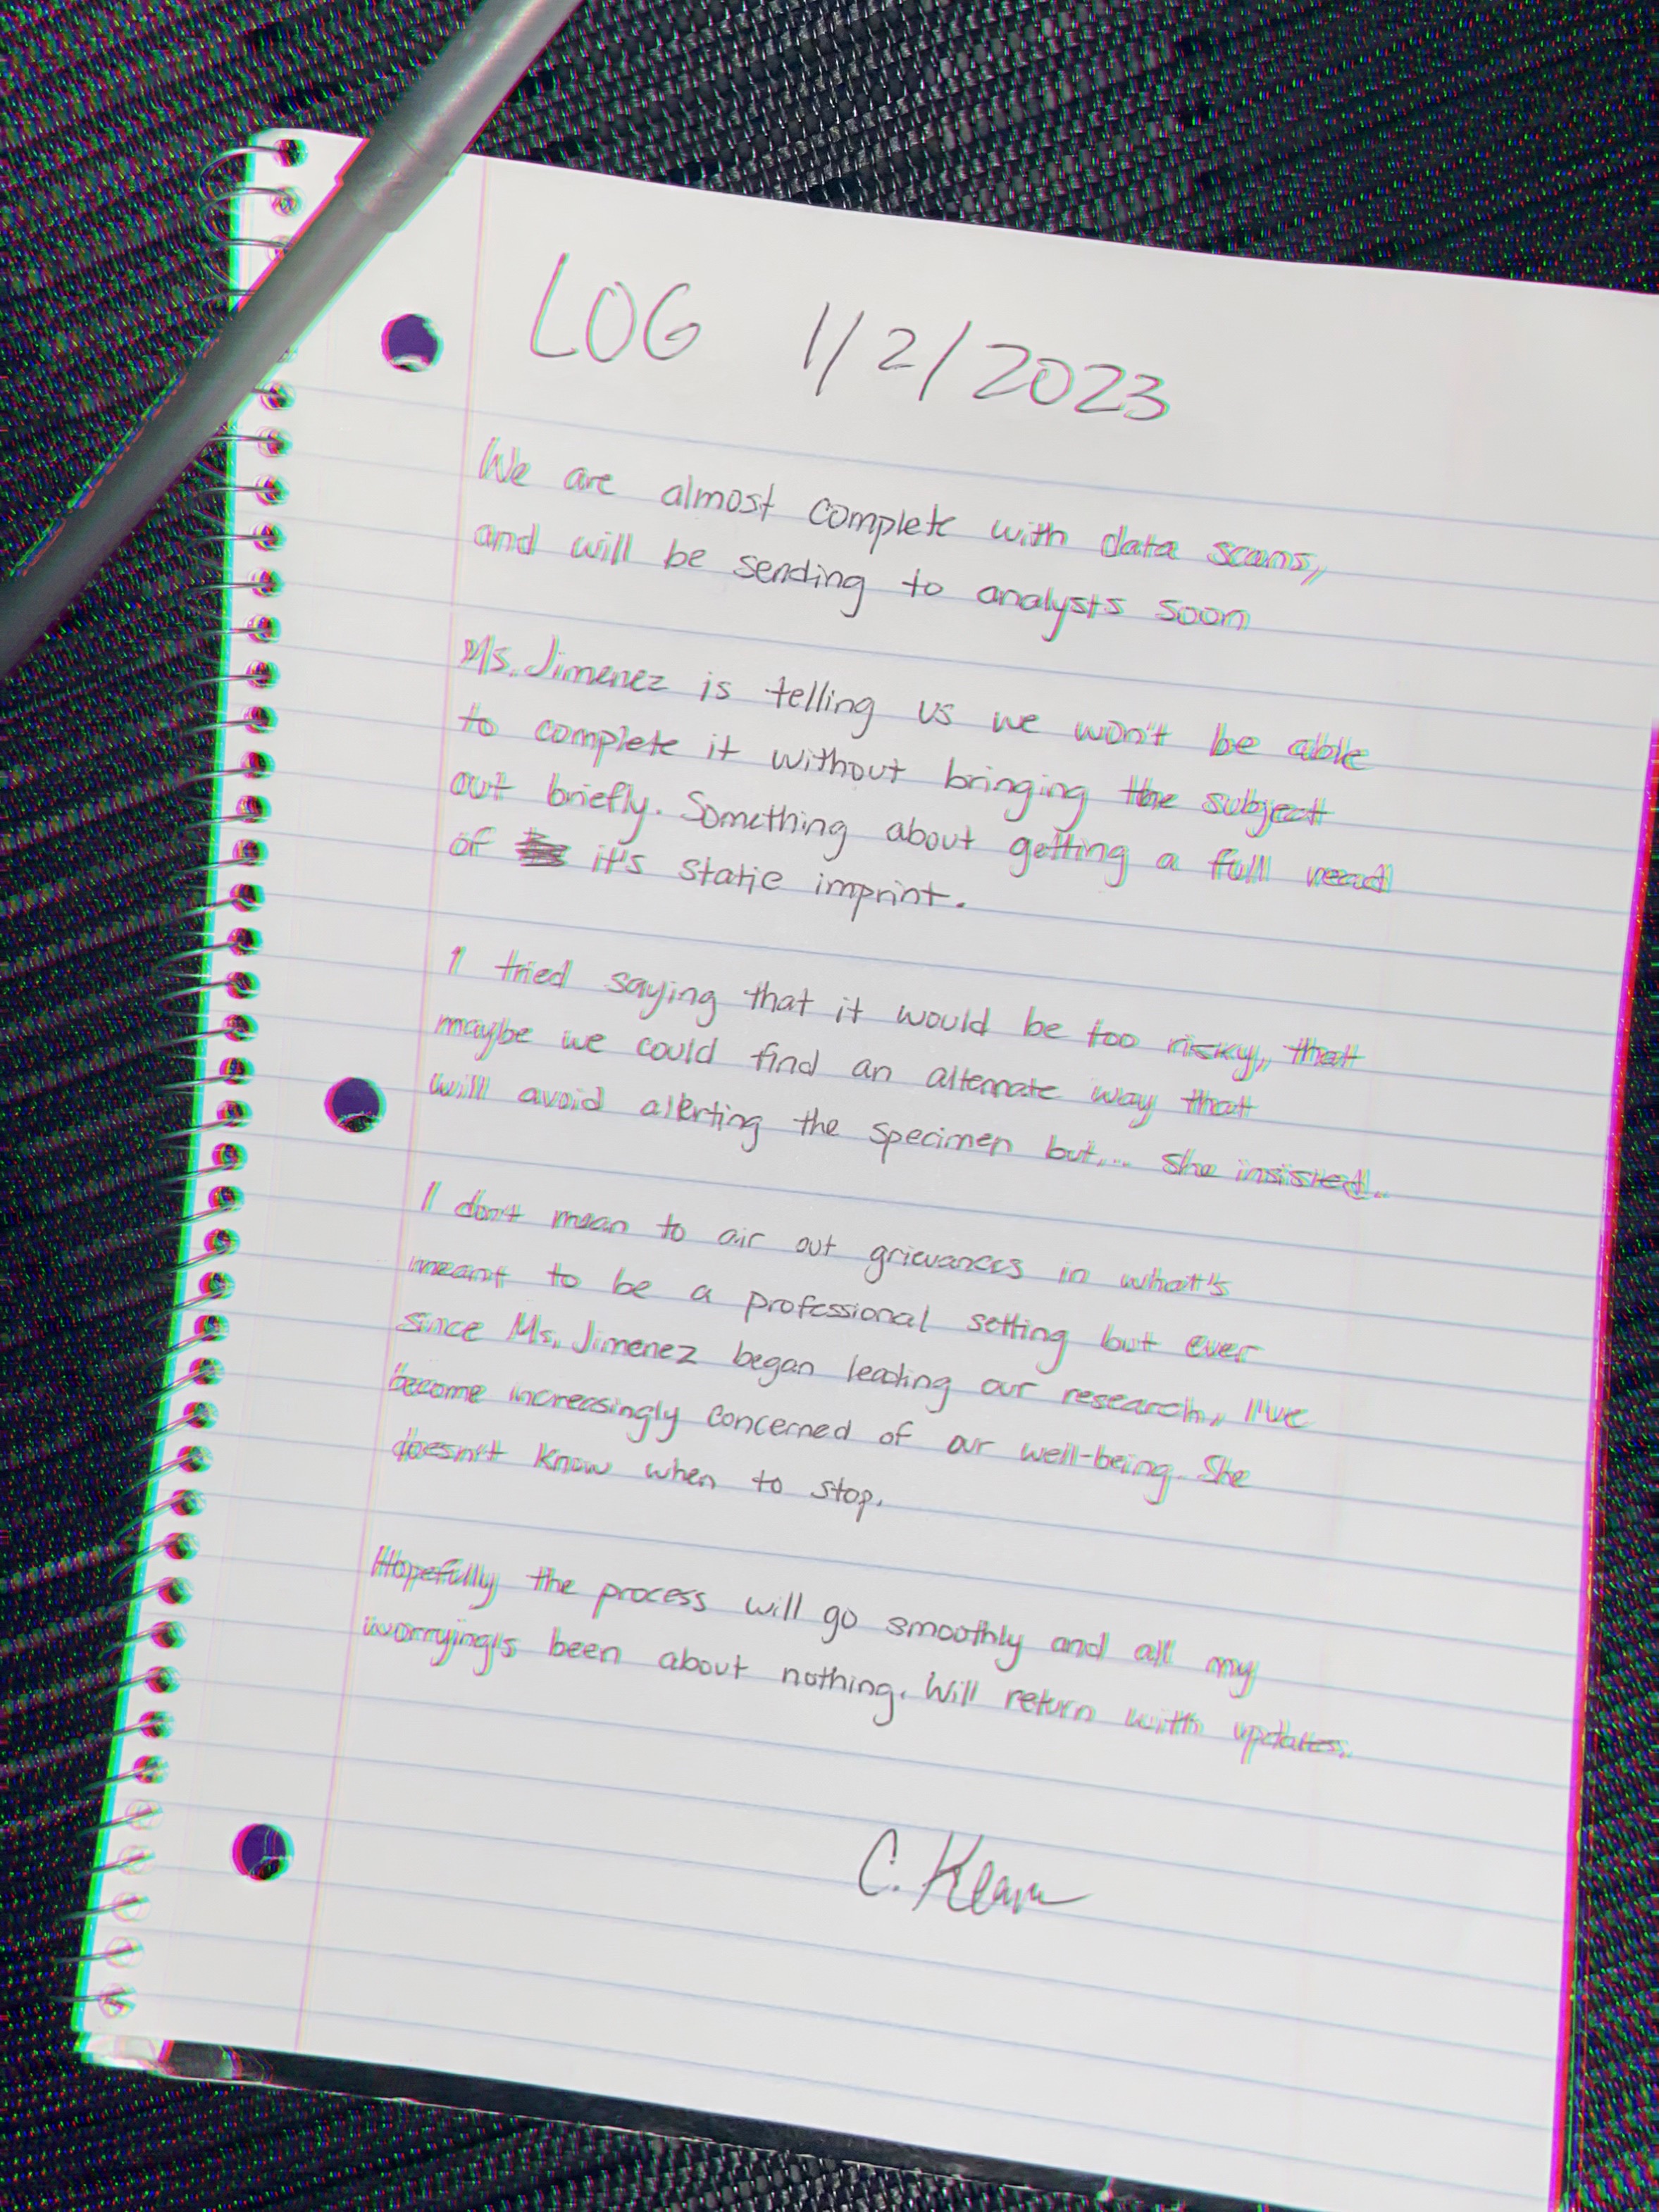 LOG 1/2/2023
We are almost complete with data scans,
and will be sending to analysts soon
Ms. Jimenez is telling us we won't be able
to complete it without bringing the subject
out briefly. Something about getting a full read
of it's static imprint.
I tried saying that it would be too risky, that
maybe we could find an alternate way that
will avoid alerting the specimen but... she insisted.
I don't mean to air out grievances in what's
meant to be a professional setting but ever
since Ms. Jimenez began leading our research, I've
become increasingly concerned of our well-being. She
doesn't know when to stop.
Hopefully the process will go smoothly and all my
worrying's been about nothing. Will return with updates.
C.